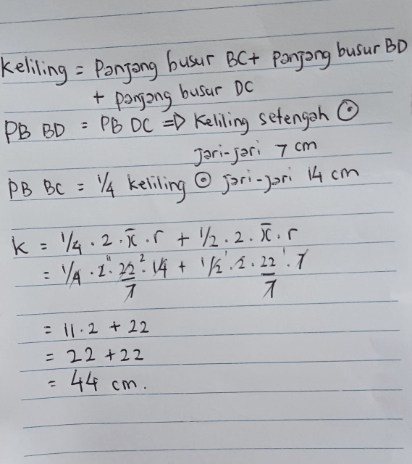 Keliling = Panjang busur BC + panjang busur BD
+ panjang busur DC
PB BD = PB DC => Keliling setengah ⊙
jari-jari 7 cm
PB BC = 1/4 keliling ⊙ jari-jari 14 cm
K = 1/4 . 2 . π . r + 1/2 . 2 . π . r
= 1/4 . 2 . 22/7 . 14 + 1/2 . 2 . 22/7 . 7
= 11 . 2 + 22
= 22 + 22
= 44 cm.